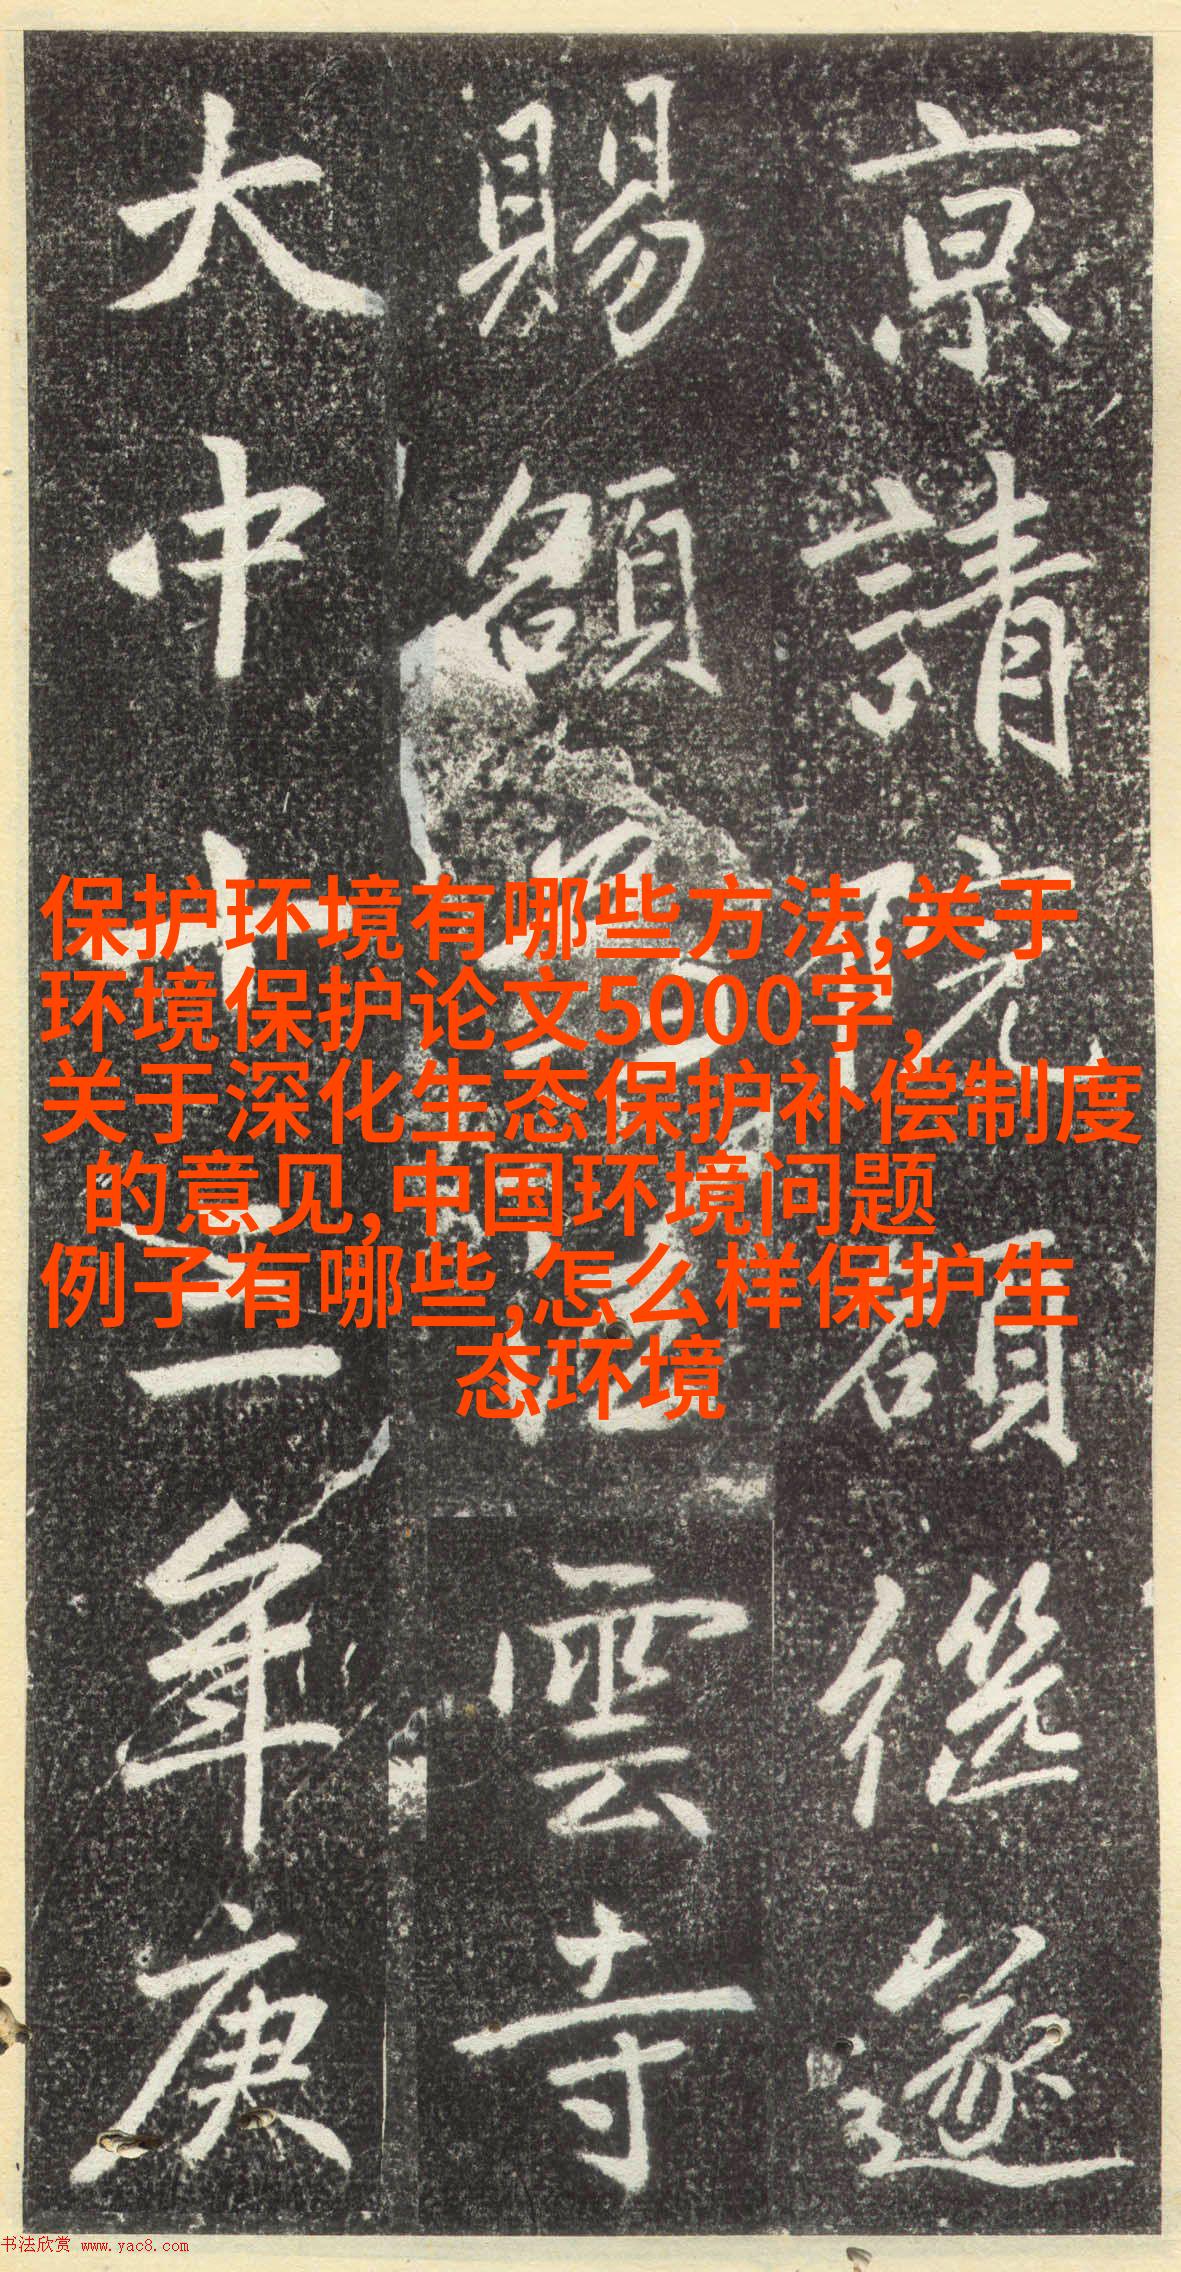 京請院額遂
賜額雲寺
大中年庚
保护环境有哪些方法,关于
环境保护论文5000字,
关于深化生态保护补偿制度
的意见,中国环境问题
例子有哪些,怎么样保护生
态环境
书法欣赏 www.yac8.com